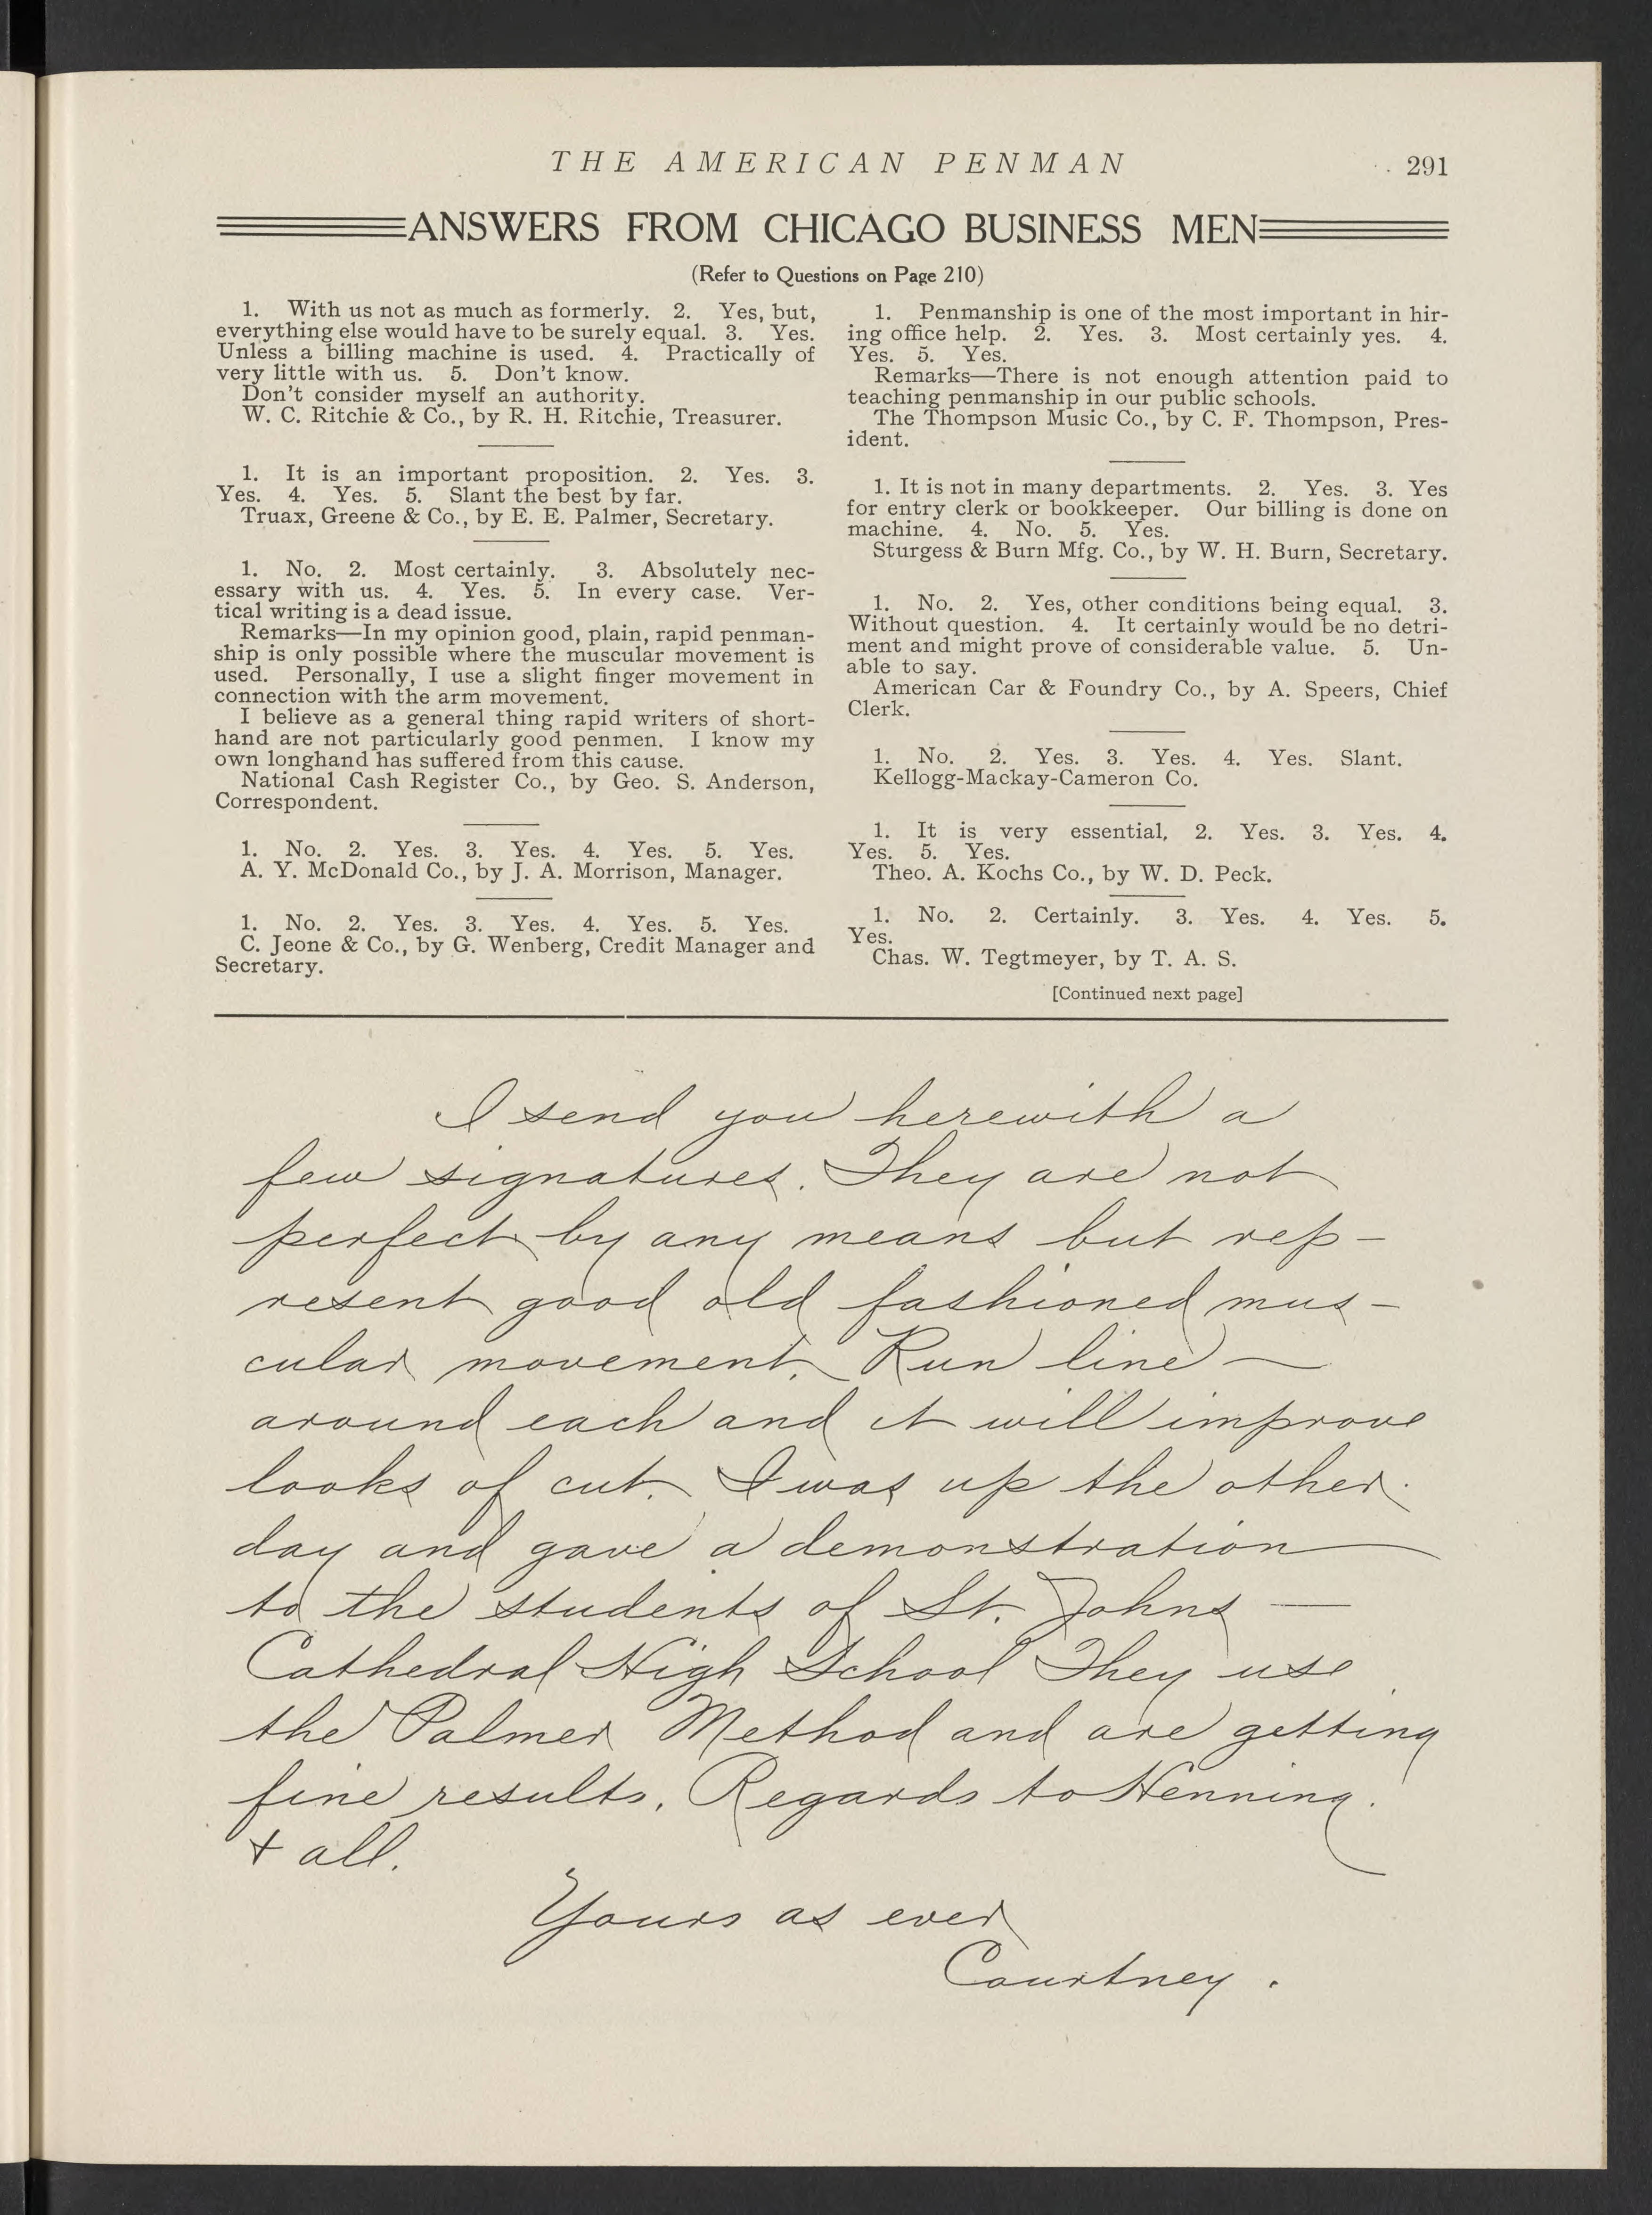 THE AMERICAN PENMAN 291
ANSWERS FROM CHICAGO BUSINESS MEN
(Refer to Questions on Page 210)
1. With us not as much as formerly. 2. Yes, but,
everything else would have to be surely equal. 3. Yes.
Unless a billing machine is used. 4. Practically of
very little with us. 5. Don't know.
Don't consider myself an authority.
W. C. Ritchie & Co., by R. H. Ritchie, Treasurer.
1. It is an important proposition. 2. Yes. 3.
Yes. 4. Yes. 5. Slant the best by far.
Truax, Greene & Co., by E. E. Palmer, Secretary.
1. No. 2. Most certainly. 3. Absolutely nec-
essary with us. 4. Yes. 5. In every case. Ver-
tical writing is a dead issue.
Remarks—In my opinion good, plain, rapid penman-
ship is only possible where the muscular movement is
used. Personally, I use a slight finger movement in
connection with the arm movement.
I believe as a general thing rapid writers of short-
hand are not particularly good penmen. I know my
own longhand has suffered from this cause.
National Cash Register Co., by Geo. S. Anderson,
Correspondent.
1. No. 2. Yes. 3. Yes. 4. Yes. 5. Yes.
A. Y. McDonald Co., by J. A. Morrison, Manager.
1. No. 2. Yes. 3. Yes. 4. Yes. 5. Yes.
C. Jeone & Co., by G. Wenberg, Credit Manager and
Secretary.
1. Penmanship is one of the most important in hir-
ing office help. 2. Yes. 3. Most certainly yes. 4.
Yes. 5. Yes.
Remarks—There is not enough attention paid to
teaching penmanship in our public schools.
The Thompson Music Co., by C. F. Thompson, Pres-
ident.
1. It is not in many departments. 2. Yes. 3. Yes
for entry clerk or bookkeeper. Our billing is done on
machine. 4. No. 5. Yes.
Sturgess & Burn Mfg. Co., by W. H. Burn, Secretary.
1. No. 2. Yes, other conditions being equal. 3.
Without question. 4. It certainly would be no detri-
ment and might prove of considerable value. 5. Un-
able to say.
American Car & Foundry Co., by A. Speers, Chief
Clerk.
1. No. 2. Yes. 3. Yes. 4. Yes. Slant.
Kellogg-Mackay-Cameron Co.
1. It is very essential, 2. Yes. 3. Yes. 4.
Yes. 5. Yes.
Theo. A. Kochs Co., by W. D. Peck.
1. No. 2. Certainly. 3. Yes. 4. Yes. 5.
Yes.
Chas. W. Tegtmeyer, by T. A. S.
[Continued next page]
I send you herewith a
few signatures. They are not
perfect by any means but rep-
resent good old fashioned mus-
cular movement. Run line
around each and it will improve
looks of cut. I was up the other
day and gave a demonstration
to the students of St. Johns
Cathedral High School They use
the Palmer Method and are getting
fine results. Regards to Henning.
+ all.
Yours as ever
Courtney.